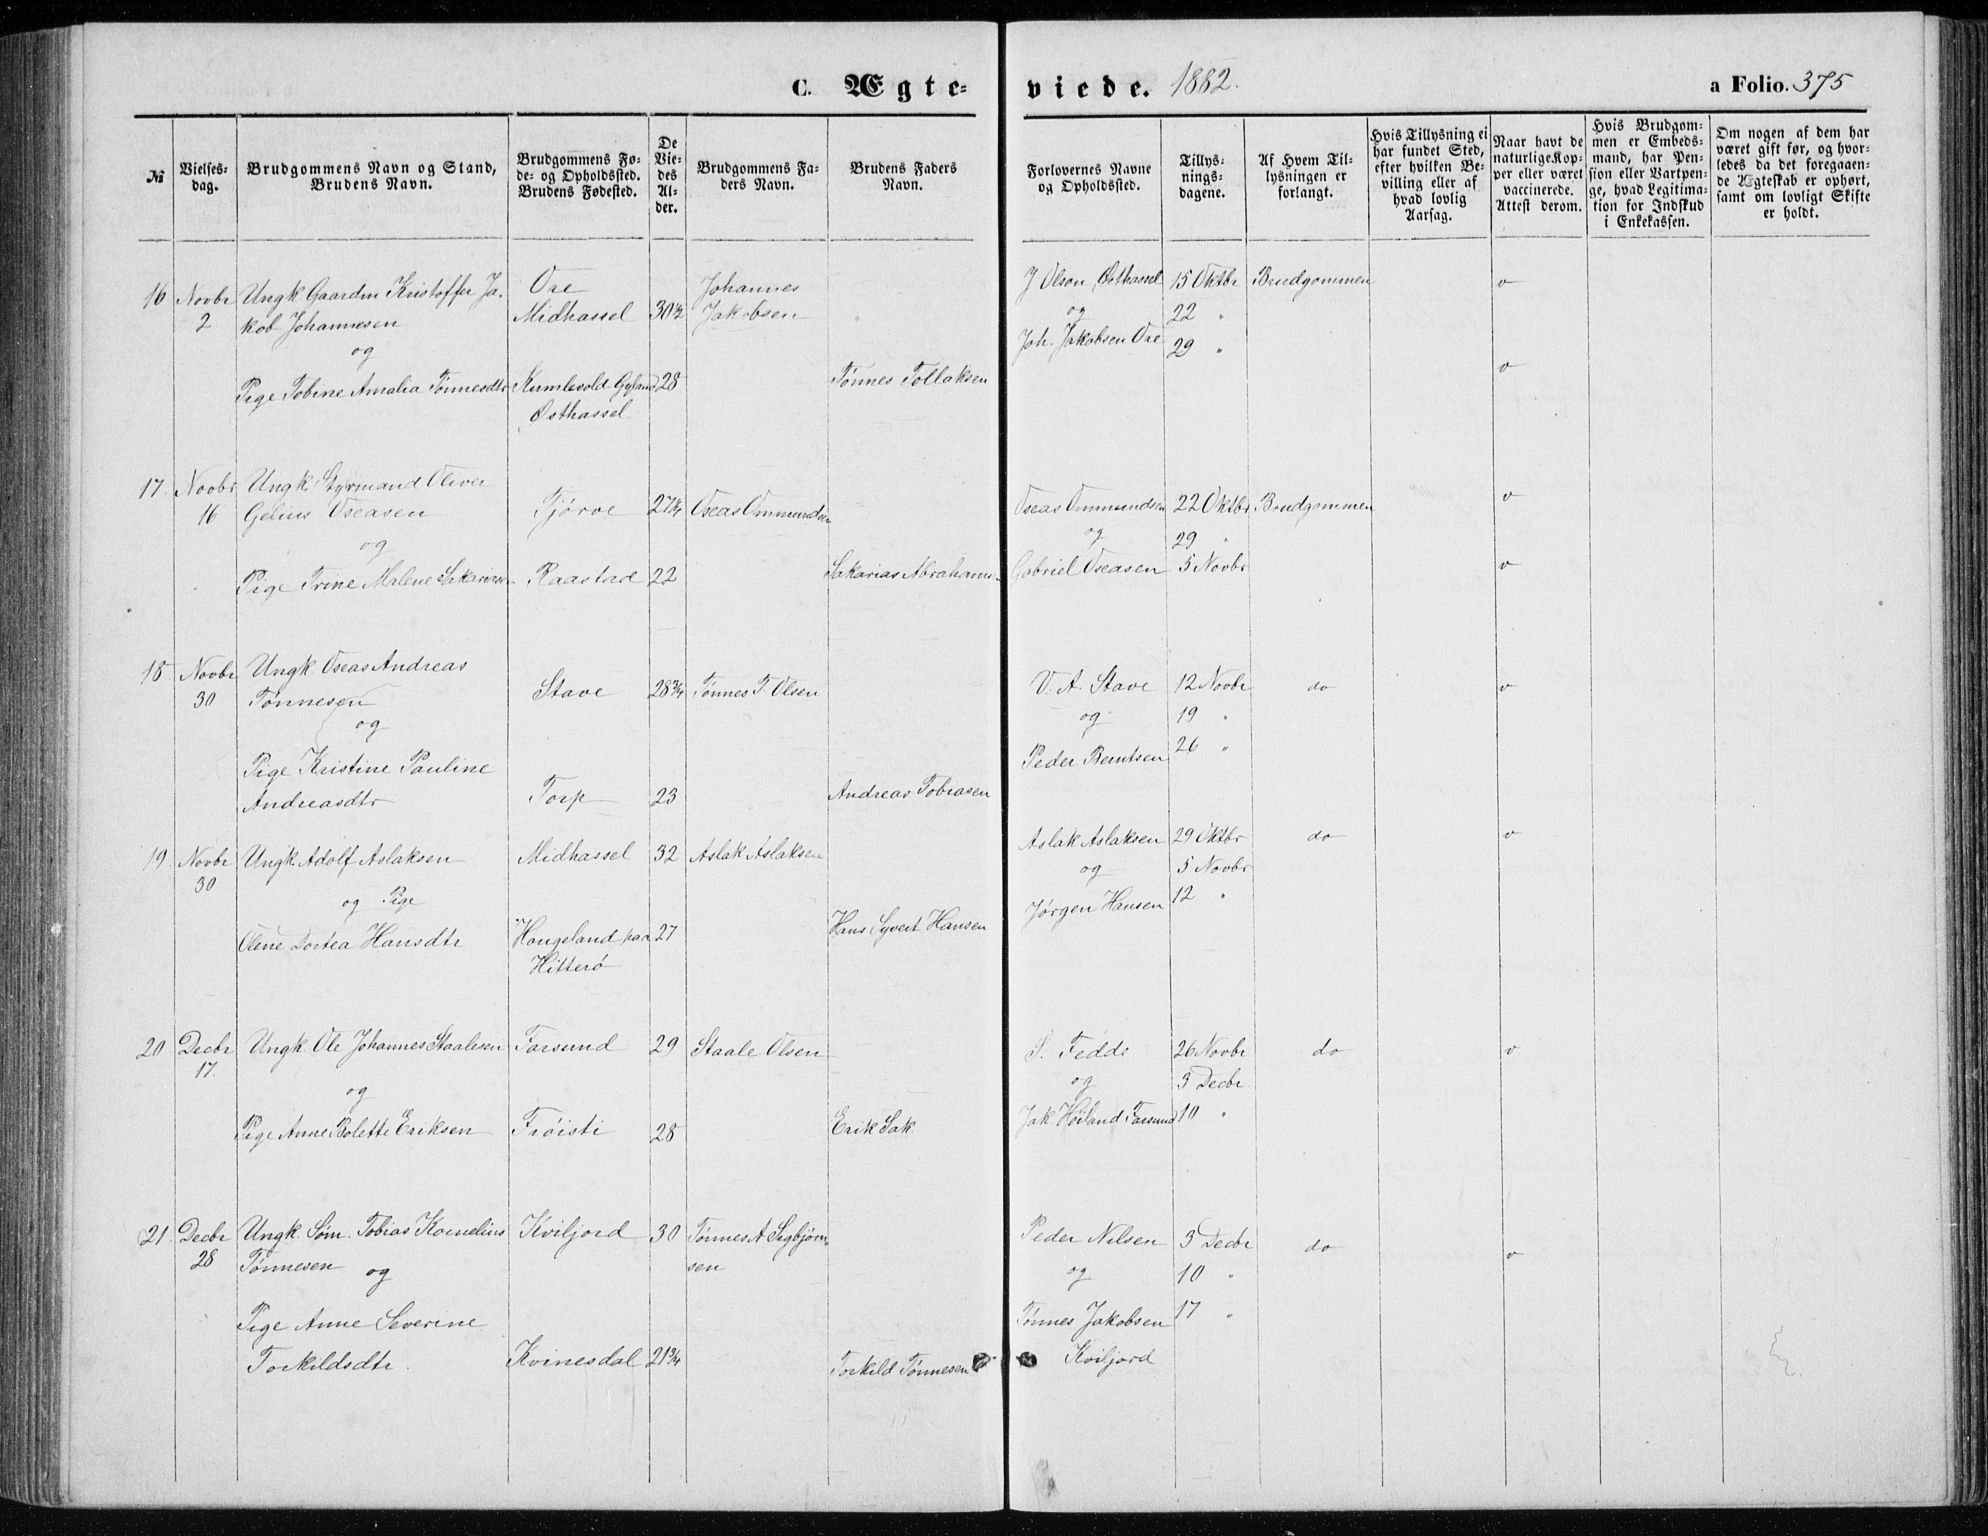 C. Ægteviede. 1882. a Folio. 375
№
Vielses-
dag.
Brudgommens Navn og Stand,
Brudens Navn.
Brudgommens Fø-
de- og Opholdssted.
Brudens Fødested.
De
Vie-
des
Al-
der.
Brudgommens Fa-
ders Navn.
Brudens Faders
Navn.
Forlovernes Navne
og Opholdssted.
Tillys-
nings-
dagene.
Af Hvem Til-
lysningen er
forlangt.
Hvis Tillysning ei
har fundet Sted,
efter hvilken Be-
villing eller af
hvad lovlig
Aarsag.
Naar havt de
naturlige Kop-
per eller været
vaccinerede.
Attest derom.
Hvis Brudgom-
men er Embeds-
mand, har Pen-
sion eller Vartpen-
ge, hvad Legitima-
tion for Indskud
i Enkekassen.
Om nogen af dem har
været gift før, og hvor-
ledes da det foregaaen-
de Ægteskab er ophørt,
samt om lovligt Skifte
er holdt.
16 Novbr Ungk. Gaardm Kristoffer Ja- Ore 30½ Johannes J Olson Østhassel 15 Oktbr Brudgommen v
2 kob Johannesen Midhassel Jakobsen og 22 "
og Joh. Jakobsen Ore 29 "
Pige Tobine Amalia Tønnesdtr Kumlevold Gyland 28 Tønnes Tollaksen v
Østhassel
17. Novbr Ungk. Styrmand Oliver Tjørve 27¾ Oseas Ommundsen Oseas Ommundsen 22 Oktbr Brudgommen v
16 Gelius Oseasen og 29 "
og
Pige Trine Malene Sakarias Raastad 22 Sakarias Abrahams Gabriel Oseasen 5 Novbr v
18 Novbr Ungk. Oseas Andreas Stave 28¾ Tønnes T. Olsen V. A. Stave 12 Novbr do v
30 Tønnesen og 19 "
og Peder Berntsen 26 "
Pige Kristine Pauline
Andreasdtr Torp 23 Andreas Tobiasen
19. Novbr Ungk. Adolf Aslaksen Midhassel 32 Aslak Aslaksen Aslak Aslaksen 29 Oktbr do v
30 og Pige og 5 Novbr
Olene Dortea Hansdtr Haugeland paa 27 Hans Syvert Hansen Jørgen Hansen 12 "
Hitterø
20 Decbr Ungk. Ole Johannes Staalesen Farsund 29 Staale Olsen S. Fedde 26 Novbr do v
17. og og 3 Decbr.
Pige Anne Bolette Eriksen Frøisti 28 Erik Sak. Jak. Høiland Farsund 10 "
21. Decbr Ungk. Søm. Tobias Kornelius Kviljord 30 Tønnes A Sigbjørn- Peder Nilsen 3 Decbr do v
28 Tønnesen og sen og 10 "
Pige Anne Severine Tønnes Jakobsen 17 "
Torkildsdtr. Kvinesdal 21¾ Torkild Tønnesen Kviljord